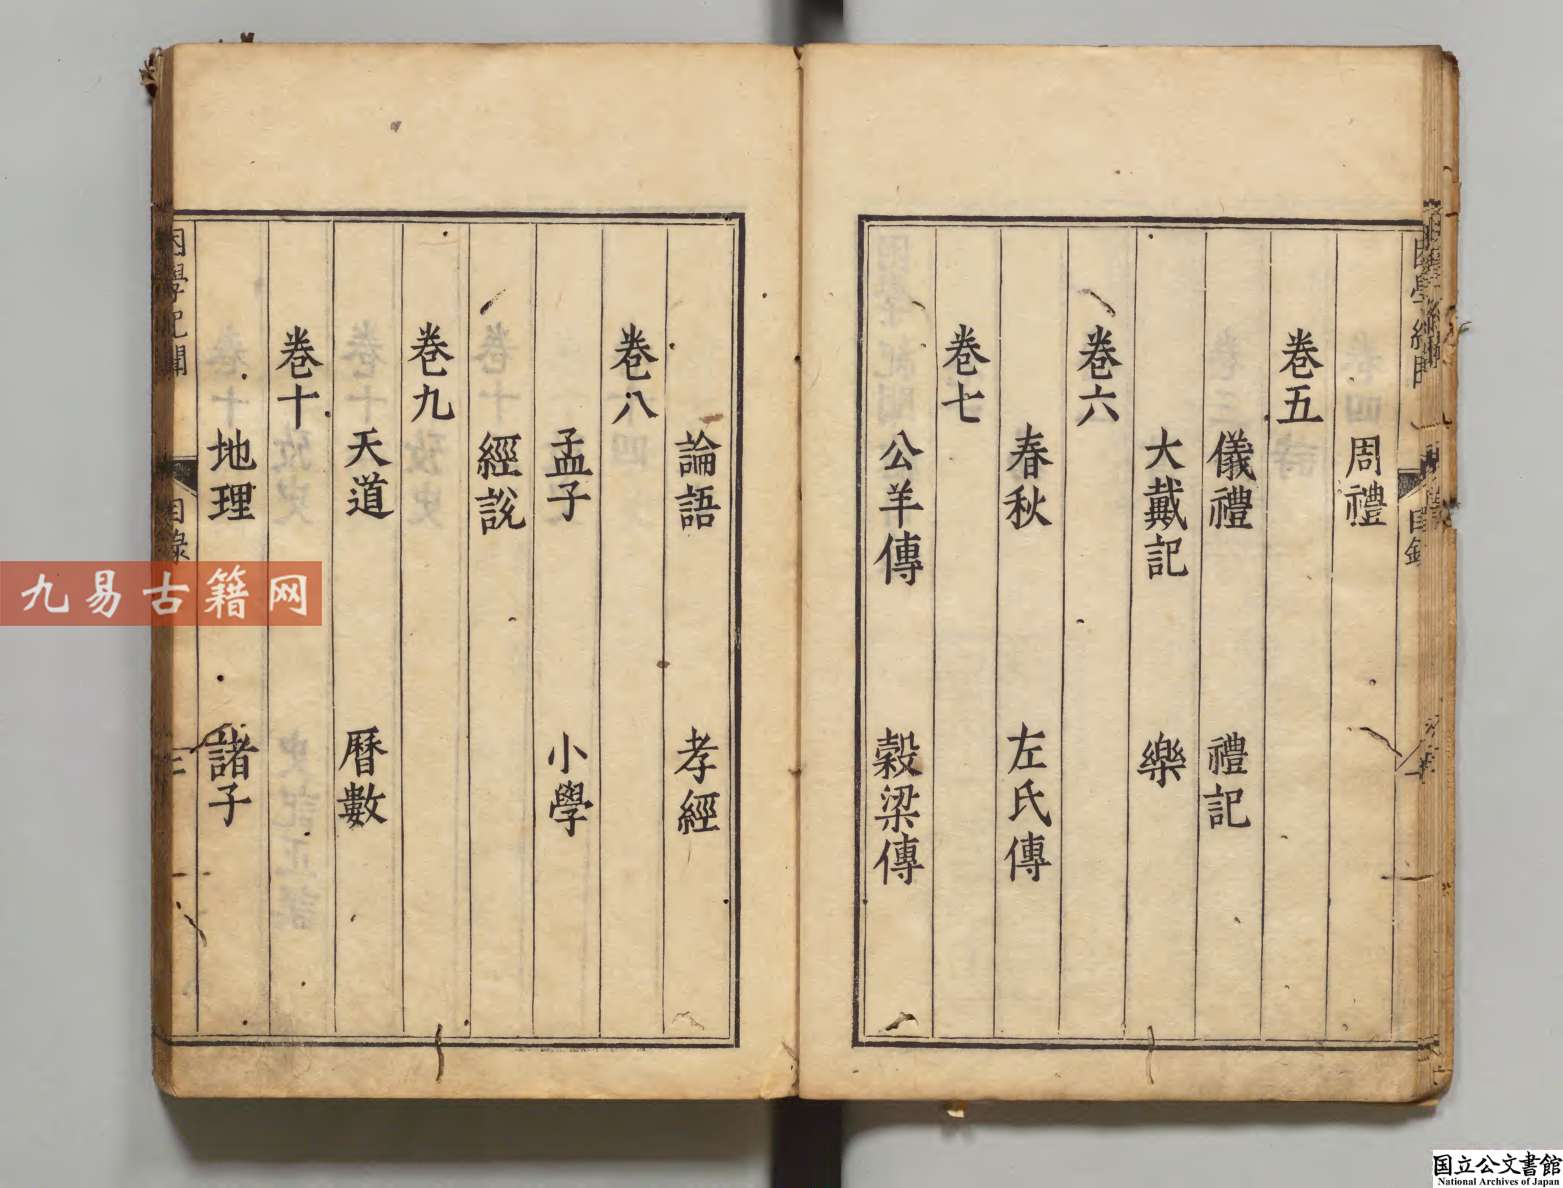 周禮
卷五
儀禮 禮記
大戴記 樂
卷六
春秋 左氏傳
卷七
公羊傳 穀梁傳
論語 孝經
卷八
孟子 小學
經說
卷九
天道 曆數
卷十
地理 諸子
困學紀聞 目錄
九易古籍网
国立公文書館
National Archives of Japan